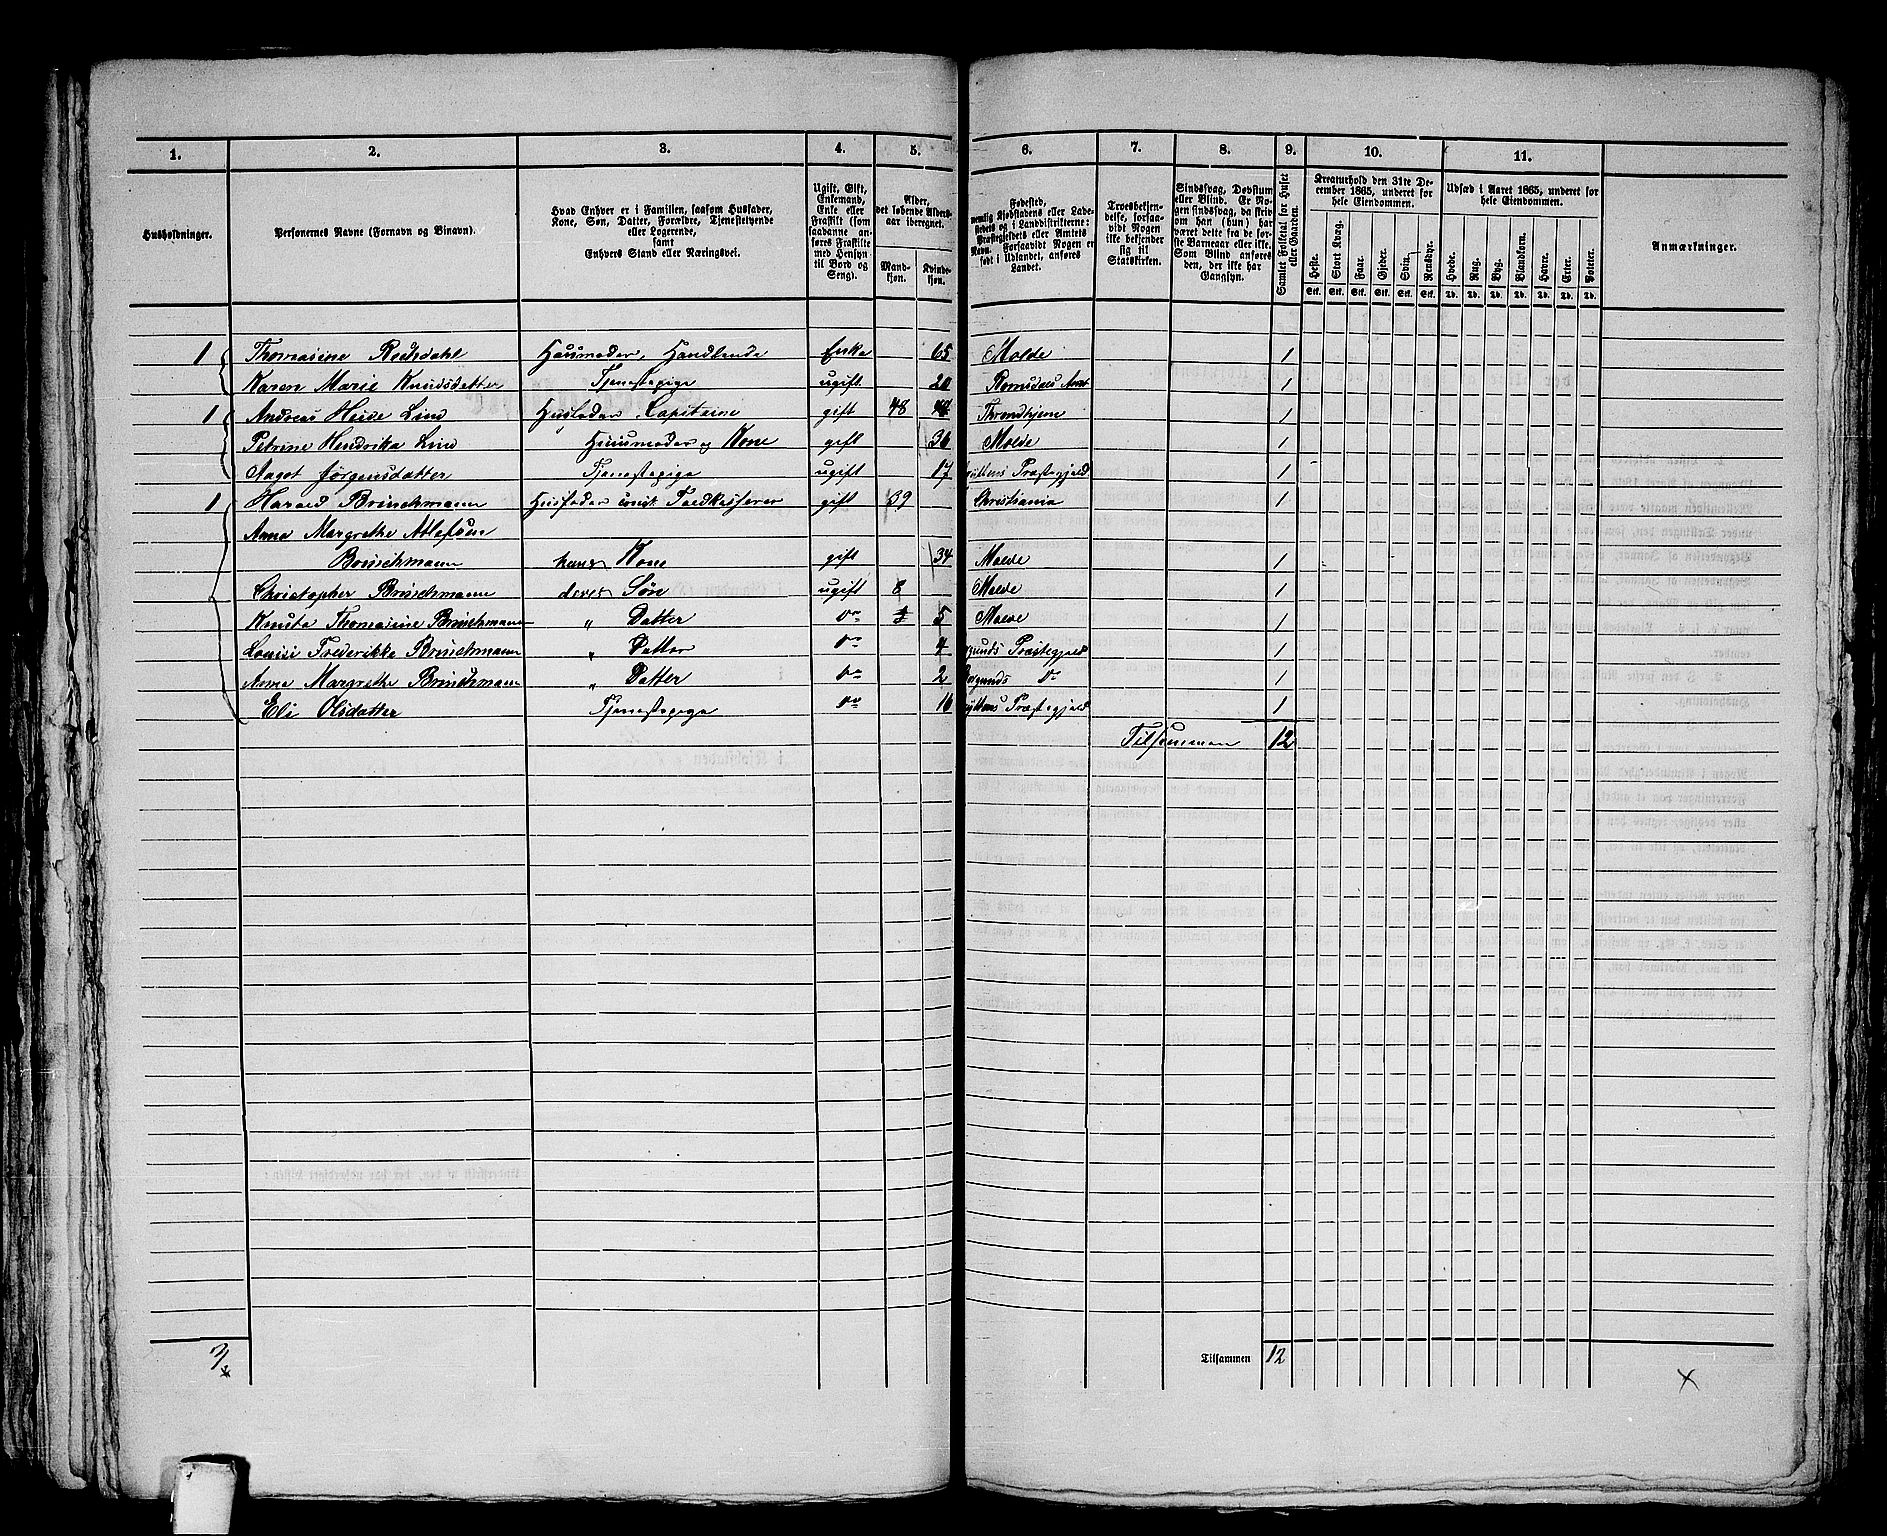 1. 2. 3. 4. 5. 6. 7. 8. 9. 10. 11.
Husholdninger.
Personernes Navne (Fornavn og Binavn).
Hvad Enhver er i Familien, saasom Husfader,
Kone, Søn, Datter, Forældre, Tjenestetyende
eller Logerende,
samt
Enhvers Stand eller Næringsvei.
Ugift, Gift,
Enkemand,
Enke eller
Fraskilt (som
saadanne an-
føres Fraskilte
med Hensyn
til Bord og
Seng).
Alder,
det løbende Alders-
aar iberegnet.
Mand-
kjøn.
Kvinde-
kjøn.
Fødested,
nemlig Kjøbstadens eller Lade-
stedets og i Landdistrikterne:
Præstegjeldets eller Amtets
Navn. Forsaavidt Nogen er
født i Udlandet, anføres
Landet.
Troesbekjen-
delse, forsaa-
vidt Nogen
ikke bekjender
sig til
Statskirken.
Sindssvag, Døvstum
eller Blind. Er No-
gen sindssvag, da skriv
om han (hun) har
været dette fra de før-
ste Barneaar eller ikke.
Som Blind ansøres
den, der ikke har
Gangsyn.
Samlet Folketal for Huset
eller Gaarden.
Kreaturhold den 31te De-
cember 1865, underet for
hele Eiendommen.
Heste. Stort Kvæg. Faar. Gjeder. Sviin. Rensdyr.
Stk. Stk. Stk. Stk. Stk. Stk.
Udsæd i Aaret 1865, underet for
hele Eiendommen.
Hvede. Rug. Byg. Blandkorn. Havre. Erter. Poteter.
Td. Td. Td. Td. Td. Td. Td.
Anmærkninger.
1 Thomasine Rødsdahl Huusmoder, Handlende Enke 65 Molde 1
Karen Marie Knudsdatter Tjenestepige ugift 20 Romsdals Amt 1
1 Andreas Heide Lind Husfader Capitaine gift 48 Throndhjem 1
Petrine Hendrika Lind Huusmoder og Kone gift 36 Molde 1
Aagot Jørgensdatter Tjenestepige ugift 17 Præstegjeld 1
1 Harald Brinchmann Husfader const. Toldkasserer gift 39 Christiania 1
Anna Margrethe
Brinchmann hans Kone gift 34 Molde 1
Christopher Brinchmann deres Søn ugift 8 Molde 1
Thomasine Brinchmann " Datter do 5 Molde 1
Frederikke Brinchmann " Datter do 4 Præstegjeld 1
Anna Margrethe Brinchmann " Datter do 2 Borgunds do 1
Eli Olsdatter Tjenestepige do 16 Præstegjeld 1
Tilsammen 12
3/x
Tilsammen 12
x